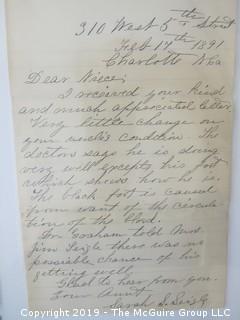 310 West 5th Street
Feb 17th 1891
Charlotte N Ca
Dear Niece;
I received your kind
and much appreciated letter.
Very little change on
your uncle's condition. The
doctors says he is doing
very well excepts his foot
which shows how he is.
The black foot is caused
from want of the circula-
tion of the blood.
Dr. Graham told Mrs.
Jim Seizle there was no
possiable chance of his
getting well.
Glad to hear from you.
Your Aunt
Sarah S. Seizle
Copyright 2019 - The McGuire Group LLC